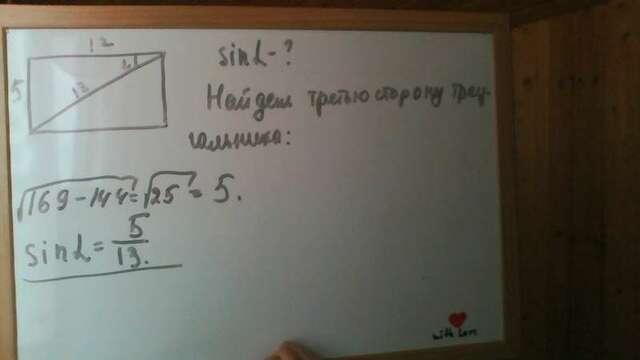 12
5
13
L
sinL-?
Найдем третью сторону треу-
гольника:
√169-144=√25=5.
sinL=5/13.
with Love